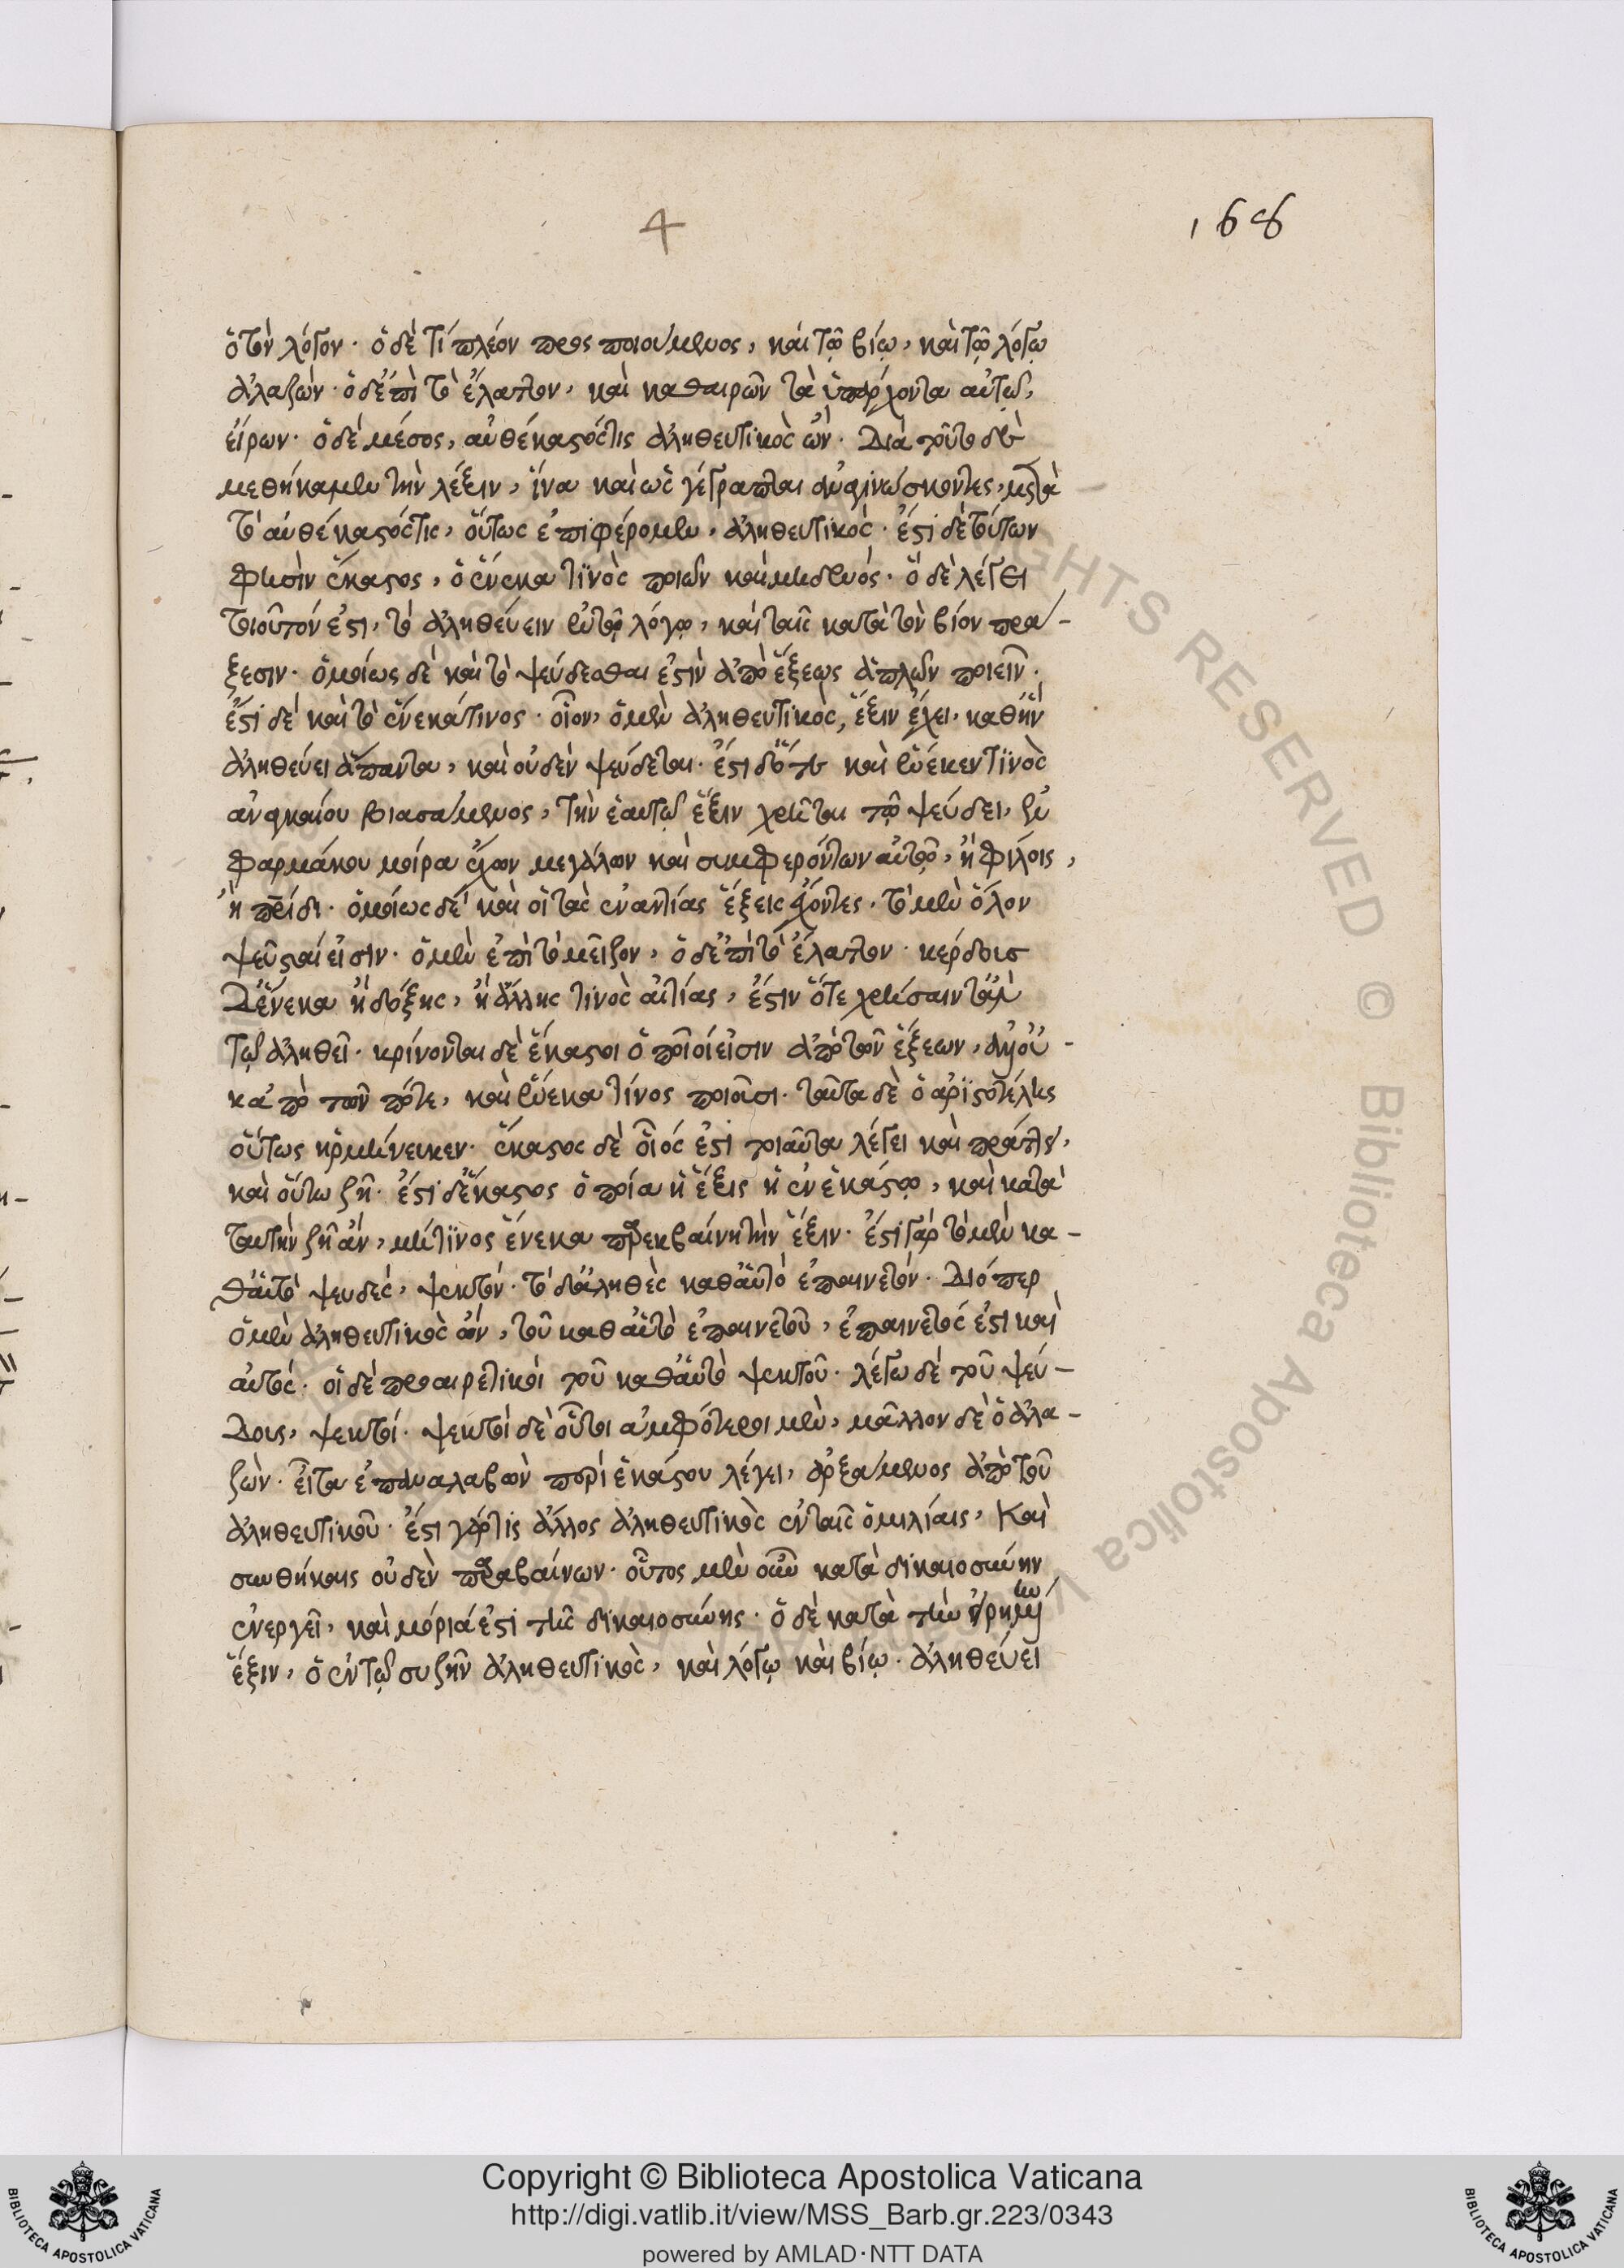 4
168
ὁ τὸν λόγον. ὁ δέ τι πλέον προσποιούμενος, καὶ τῷ βίῳ, καὶ τῷ λόγῳ
ἀλαζών. ὁ δ' ἐπὶ τὸ ἔλαττον, καὶ καθαιρῶν τὰ ὑπάρχοντα αὐτῷ,
εἴρων. ὁ δὲ μέσος, αὐθέκαστός τις ἀληθευτικὸς ὤν. Διὰ τοῦτο δὲ
μεθήκαμεν τὴν λέξιν, ἵνα καὶ ὡς γέγραπται ἀναγινώσκοντες, μετὰ
τὸ αὐθέκαστός τις, οὕτως ἐπιφέρομεν, ἀληθευτικός. ἔστι δὲ τούτων
φησὶν ἕκαστος, ὁ ἕνεκα τινὸς ποιῶν καὶ μηδενός. ὃ δὲ λέγει
τοιοῦτόν ἐστι, τὸ ἀληθεύειν ἐν τῷ λόγῳ, καὶ ταῖς κατὰ τὸν βίον πρά-
ξεσιν. ὁμοίως δὲ καὶ τὸ ψεύδεσθαι ἐστὶν ἀπὸ ἕξεως ἁπλῶν ποιεῖν.
ἔστι δὲ καὶ τὸ ἕνεκά τινος. οἷον, ὁ μὲν ἀληθευτικὸς, ἕξιν ἔχει, καθ' ἣν
ἀληθεύει ἅπαντα, καὶ οὐδὲν ψεύδεται. ἔστι δ' ὅτε καὶ ἕνεκεν τινὸς
ἀναγκαίου βιασάμενος, τὴν ἑαυτοῦ ἕξιν χρῆται τῷ ψεύδει, ἐν
φαρμάκου μοίρα ἕνεκα μεγάλων καὶ συμφερόντων αὐτῷ, ἢ φίλοις,
ἢ πατρίδι. ὁμοίως δὲ καὶ οἱ τὰς ἐναντίας ἕξεις ἔχοντες. τὸ μὲν ὅλον
ψεῦσταί εἰσιν. ὁ μὲν ἐπὶ τὸ μεῖζον, ὁ δ' ἐπὶ τὸ ἔλαττον. κέρδους
δ' ἕνεκα ἢ δόξης, ἢ ἄλλης τινὸς αἰτίας, ἔστιν ὅτε χρήσαιντ' ἂν
τῷ ἀληθεῖ. κρίνονται δὲ ἕκαστοι ὁποῖοί εἰσιν ἀπὸ τῶν ἕξεων, ἀλλ' οὐ-
κ ἀπὸ τῶν πότε, καὶ ἕνεκα τίνος ποιοῦσι. ταῦτα δὲ ὁ ἀριστοτέλης
οὕτως ἡρμήνευκεν. ἕκαστος δὲ οἷός ἐστι τοιαῦτα λέγει καὶ πράττει,
καὶ οὕτω ζῇ. ἔστι δ' ἕκαστος ὁποία ἡ ἕξις ἡ ἐν ἑκάστῳ, καὶ κατὰ
ταύτην ζῇ ἂν, μή τινος ἕνεκα παρεκβαίνῃ τὴν ἕξιν. ἔστι γὰρ τὸ μὲν κα-
θ' αὑτὸ ψευδὲς, ψεκτόν. τὸ δ' ἀληθὲς καθ' αὑτὸ ἐπαινετόν. Διόπερ
ὁ μὲν ἀληθευτικὸς ὢν, τοῦ καθ' αὑτὸ ἐπαινετοῦ, ἐπαινετός ἐστι καὶ
αὐτός. οἱ δὲ προαιρετικοὶ τοῦ καθ' αὑτὸ ψεκτοῦ. λέγω δὲ τοῦ ψεύ-
δους, ψεκτοί. ψεκτοὶ δὲ οὗτοι ἀμφότεροι μὲν, μᾶλλον δὲ ὁ ἀλα-
ζών. εἶτα ἐπαναλαβὼν περὶ ἑκάστου λέγει, ἀρξάμενος ἀπὸ τοῦ
ἀληθευτικοῦ. ἔστι γάρ τις ἄλλος ἀληθευτικὸς ἐν ταῖς ὁμιλίαις, καὶ
συνθήκαις οὐδὲν παραβαίνων. οὗτος μὲν οὖν κατὰ δικαιοσύνην
ἐνεργεῖ, καὶ μόριά ἐστι τῆς δικαιοσύνης. ὁ δὲ κατὰ τὴν εἰρημένην
ἕξιν, ὁ ἐν τῷ συζῆν ἀληθευτικὸς, καὶ λόγῳ καὶ βίῳ. ἀληθεύει
RIGHTS RESERVED © Biblioteca Apostolica
Copyright © Biblioteca Apostolica Vaticana
http://digi.vatlib.it/view/MSS_Barb.gr.223/0343
powered by AMLAD·NTT DATA
BIBLIOTECA APOSTOLICA VATICANA
BIBLIOTECA APOSTOLICA VATICANA